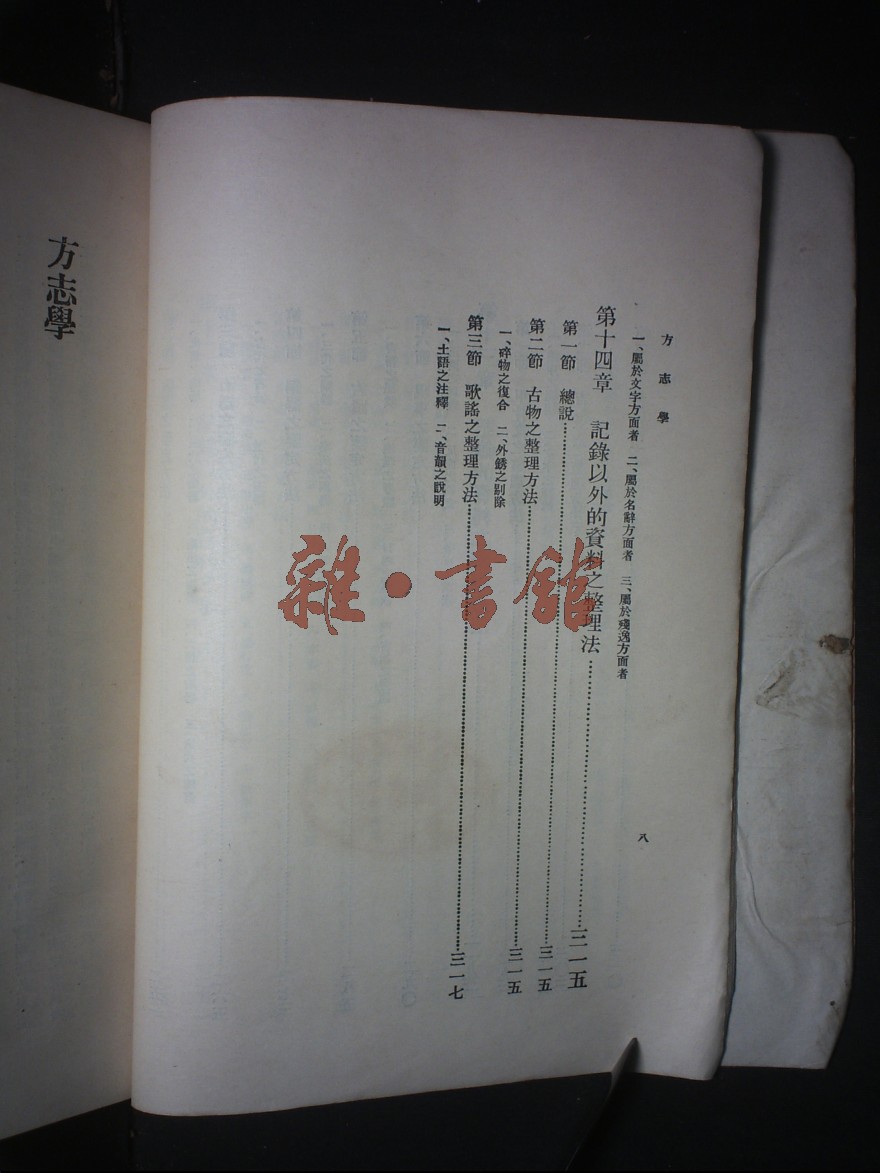 方志學
八
一、屬於文字方面者 二、屬於名辭方面者 三、屬於殘逸方面者
第十四章 記錄以外的資料之整理法……三一五
第一節 總說……三一五
第二節 古物之整理方法……三一五
一、碎物之復合 二、外銹之剔除
第三節 歌謠之整理方法……三一七
一、土語之注釋 二、音韻之說明
方志學
雜·書館